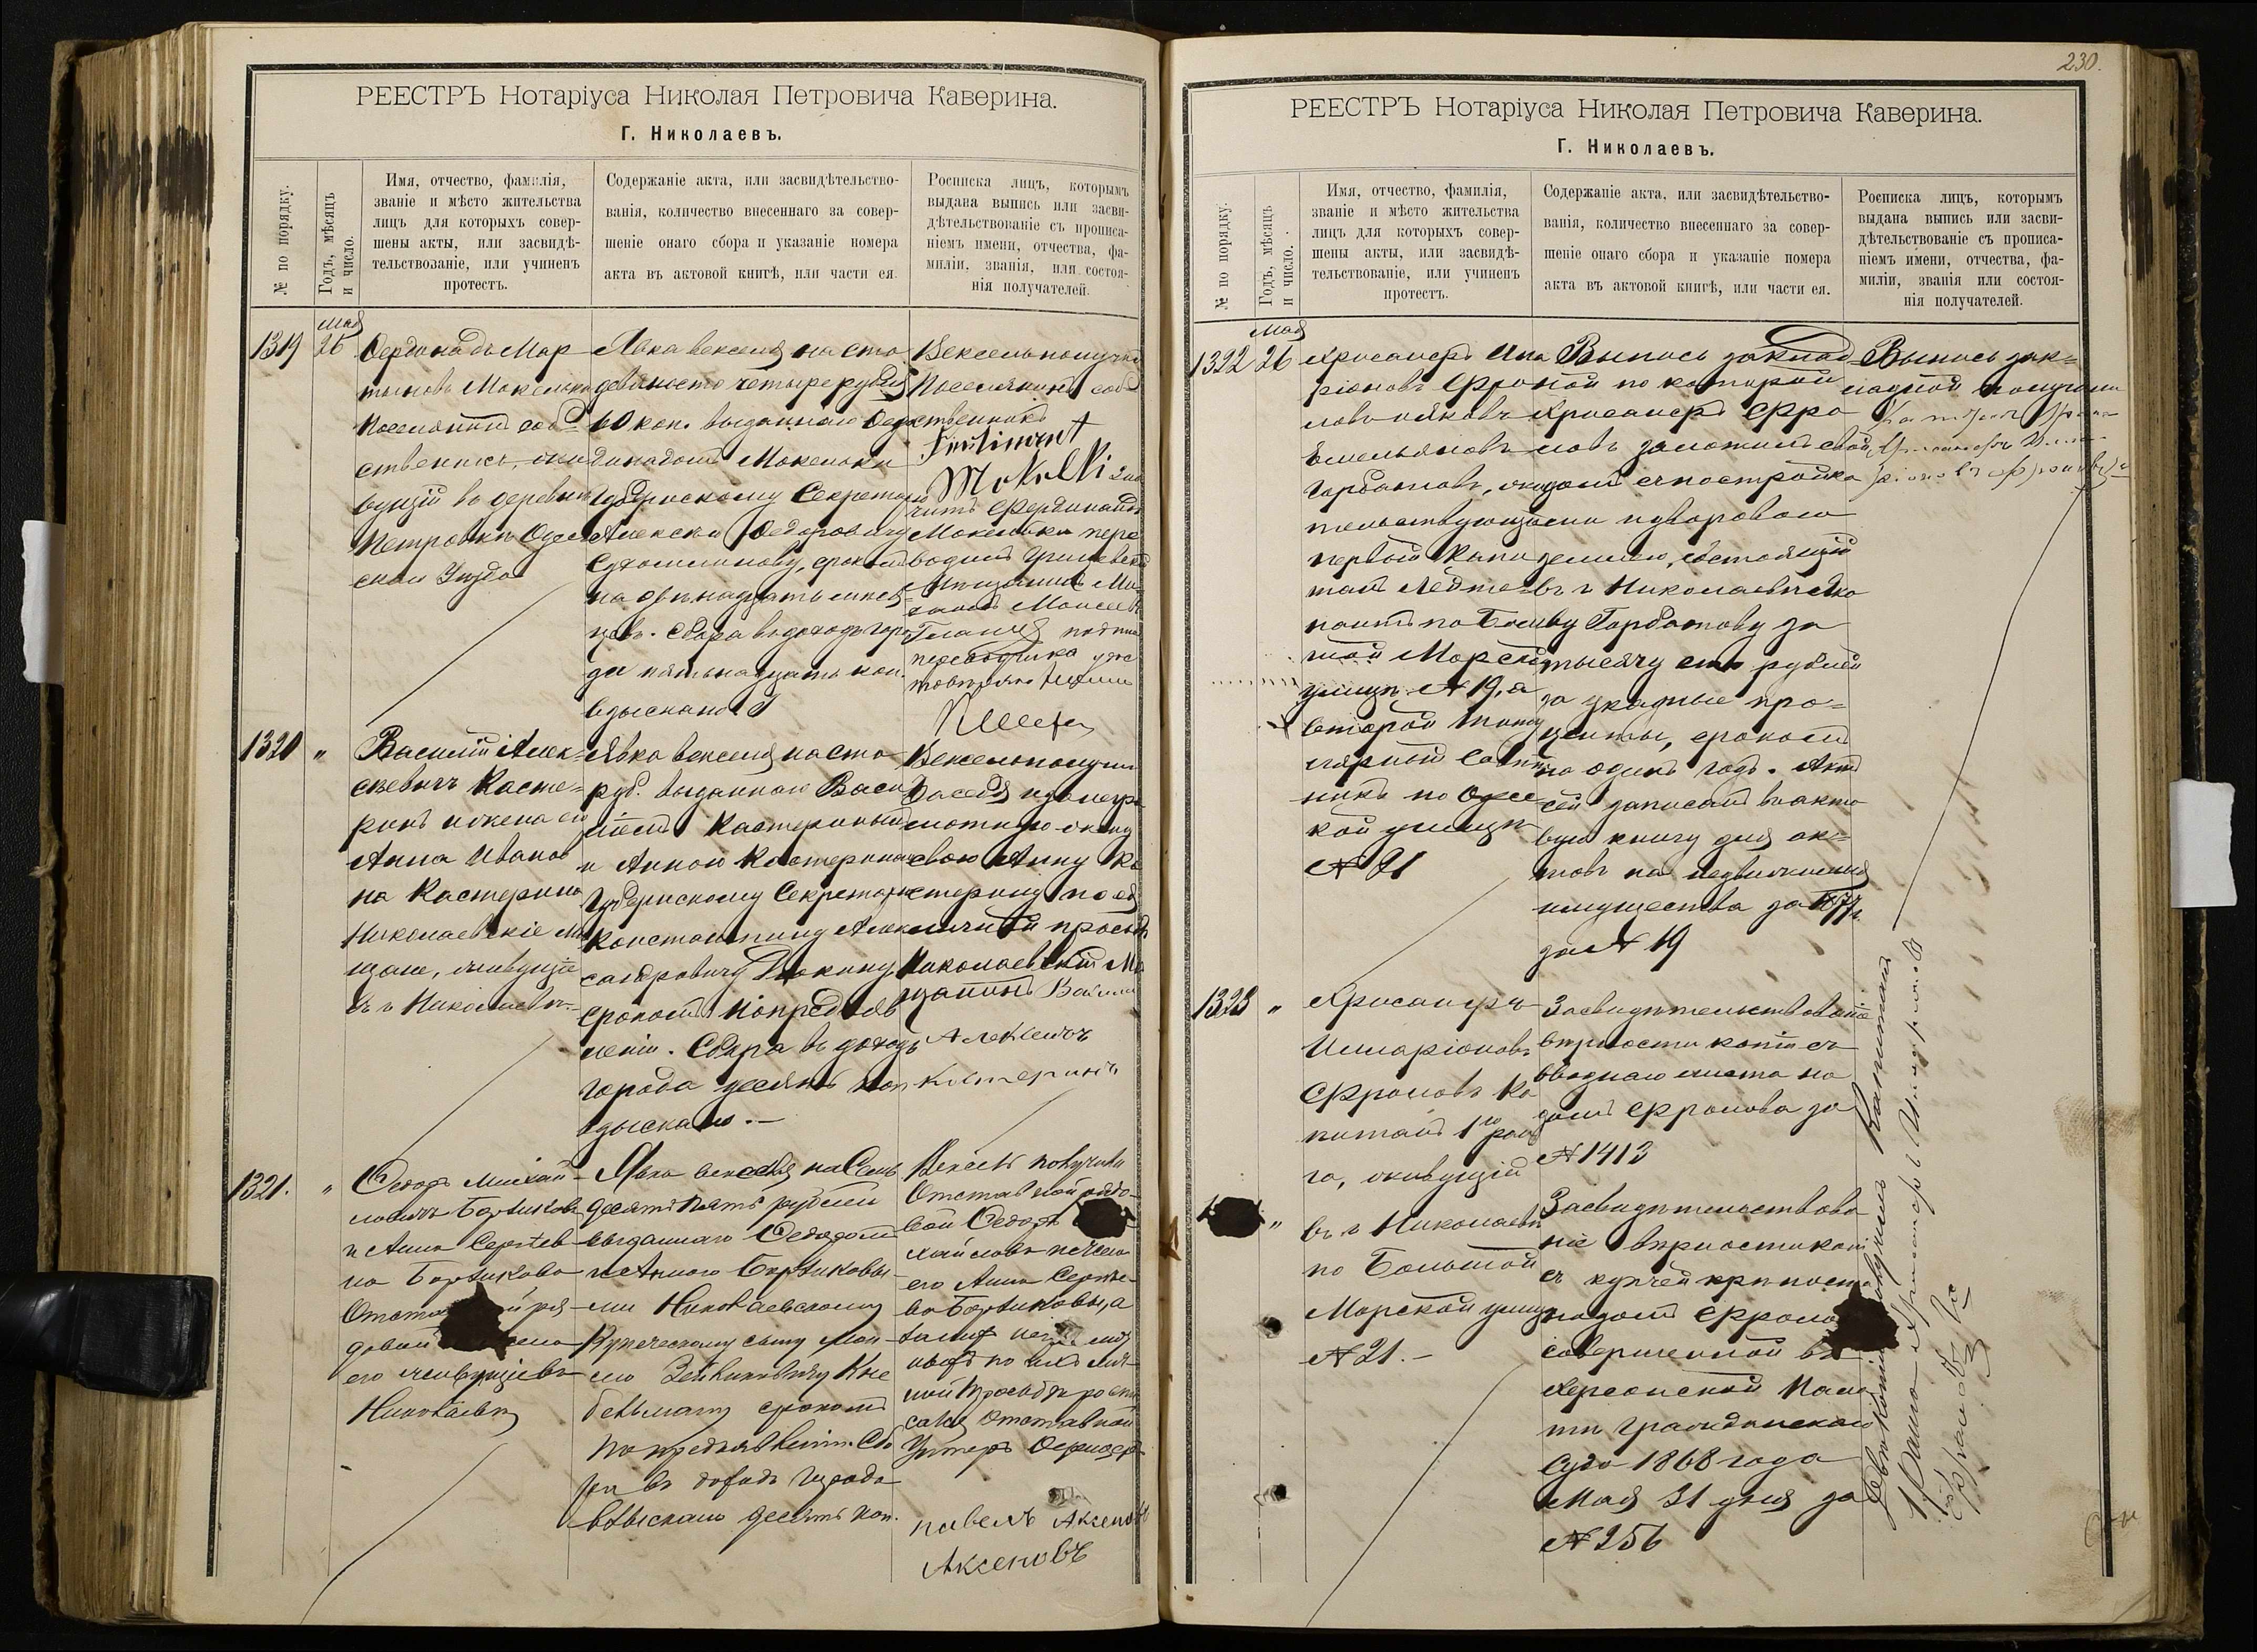 РЕЕСТРЪ Нотаріуса Николая Петровича Каверина.
Г. Николаевъ.
№ по порядку.
Годъ, мѣсяцъ
и число.
Имя, отчество, фамилія,
званіе и мѣсто жительства
лицъ для которыхъ совер-
шены акты, или засвидѣ-
тельствованіе, или учиненъ
протестъ.
Содержаніе акта, или засвидѣтельство-
ванія, количество внесеннаго за совер-
шеніе онаго сбора и указаніе номера
акта въ актовой книгѣ, или части ея.
Росписка лицъ, которымъ
выдана выпись или засви-
дѣтельствованіе съ прописа-
ніемъ имени, отчества, фа-
миліи, званія, или состоя-
нія получателей.
1319
Мая
26
Фердинандъ Мар
тыновъ Мокельки
Поселянинъ соб-
ственникъ, жи
вущій въ деревнѣ
Петровкѣ Одес
скаго Уѣзда
Явка векселя на сто
девяносто четыре рубля
60 коп. выданнаго Фер
динандомъ Мокельки
Губернскому Секретарю
Алексѣю Федоровичу
Сухомлинову, срокомъ
на двѣнадцать мѣся-
цевъ. Сбора въ доходъ горо
да пятьнадцать коп.
взыскано
Вексель получилъ
Поселянинъ соб-
ственникъ
Ferdinant
Mokelki зна
читъ Фердинандъ
Мокельки пере
водилъ
Мѣщанинъ
Моисеев
подпись
переводчика удос
товѣряю
1320
"
Василій Алек-
сѣевичъ Косте-
ринъ и жена его
Анна Иванов
на Костерина
Николаевскіе Мѣ
щане, живущіе
въ г. Николаевѣ.
Явка векселя на сто
руб. выданнаго Васи
ліемъ Костеринымъ
и Анною Костериною
Губернскому Секретарю
Константину Алек
сандровичу
срокомъ по предъяв
ленію. Сбора въ доходъ
города десять коп
взыскано.-
Вексель получилъ
за себя и за негра
мотную жену
свою Анну Ко
стерину по ея
личной просьбѣ
Николаевскій Мѣ
щанинъ Василій
Алексѣевъ
Костеринъ
1321.
"
Федоръ Михай-
ловичъ Бортиковъ
и Анна Сергѣев-
на Бортикова
Отста й ря-
довой жена
его живущіе въ
Николаевѣ
Явка векселя на Семь
десятъ пять рублей
выданнаго Федоромъ
и Анною Бортиковы-
ми Николаевскому
Купеческому сыну
срокомъ
по предъявленіи. Сбо
ра въ доходъ города
взыскано десять коп.
Вексель получили
Отставной рядо-
вой Федоръ
хайловъ и жена
его Анна Сергѣе-
ва Бортиковы, а
по ихъ лич-
ной просьбѣ роспи
сался Отставной
Унтеръ Офицеръ
Павелъ Аксеновъ
Аксеновъ
230.
РЕЕСТРЪ Нотаріуса Николая Петровича Каверина.
Г. Николаевъ.
№ по порядку.
Годъ, мѣсяцъ
и число.
Имя, отчество, фамилія,
званіе и мѣсто жительства
лицъ для которыхъ совер-
шены акты, или засвидѣ-
тельствованіе, или учиненъ
протестъ.
Содержаніе акта, или засвидѣтельство-
ванія, количество внесеннаго за совер-
шеніе онаго сбора и указаніе номера
акта въ актовой книгѣ, или части ея.
Росписка лицъ, которымъ
выдана выпись или засви-
дѣтельствованіе съ прописа-
ніемъ имени, отчества, фа-
миліи, званія или состоя-
нія получателей.
1322
Мая
26
Хрисанфъ Ила
ріоновъ Фро
ловъ и Яковъ
Емельяновъ
Горбатовъ, жи
тельствующіе
первый Капи
танъ Лейте
нантъ по Боль
шой Морской
улицѣ № 19, а
второй Титу
лярный Совѣт
никъ по Одес
кой улицѣ
№ 21
Выпись заклад-
ной по которой
Хрисанфъ Фро
ловъ заложилъ свой
домъ съ постройка
ми и дворовою
землею, состоящій
въ г. Николаевѣ Яко
ву Горбатову за
тысячу сто рублей
за указные про-
центы, срокомъ
на одинъ годъ. Актъ
сей записанъ въ акто
вую книгу для ак-
товъ на недвижимыя
имущества за 1877 г.
за № 19
Выпись зак-
ладной получилъ
Хрисанфъ Ила-
ріоновъ Фроловъ
1323
"
Хрисанфъ
Илларіоновъ
Фроловъ Ка
питанъ 1го ран
га, живущій
въ г. Николаевѣ
по Большой
Морской улицѣ
№ 21.-
Засвидѣтельствованіе
вѣрности копіи съ
вводнаго листа на
домъ Фролова за
№ 1413
"
Засвидѣтельствова
ніе вѣрности копіи
съ купчей крѣпости
на домъ Фроло
совершенной въ
Херсонской Пала
тѣ Гражданскаго
Суда 1868 года
Мая 31 дня за
№ 256
Двѣ копіи получилъ Капитанъ
1 Ранга Хрисанфъ Иларіоновъ
Фроловъ